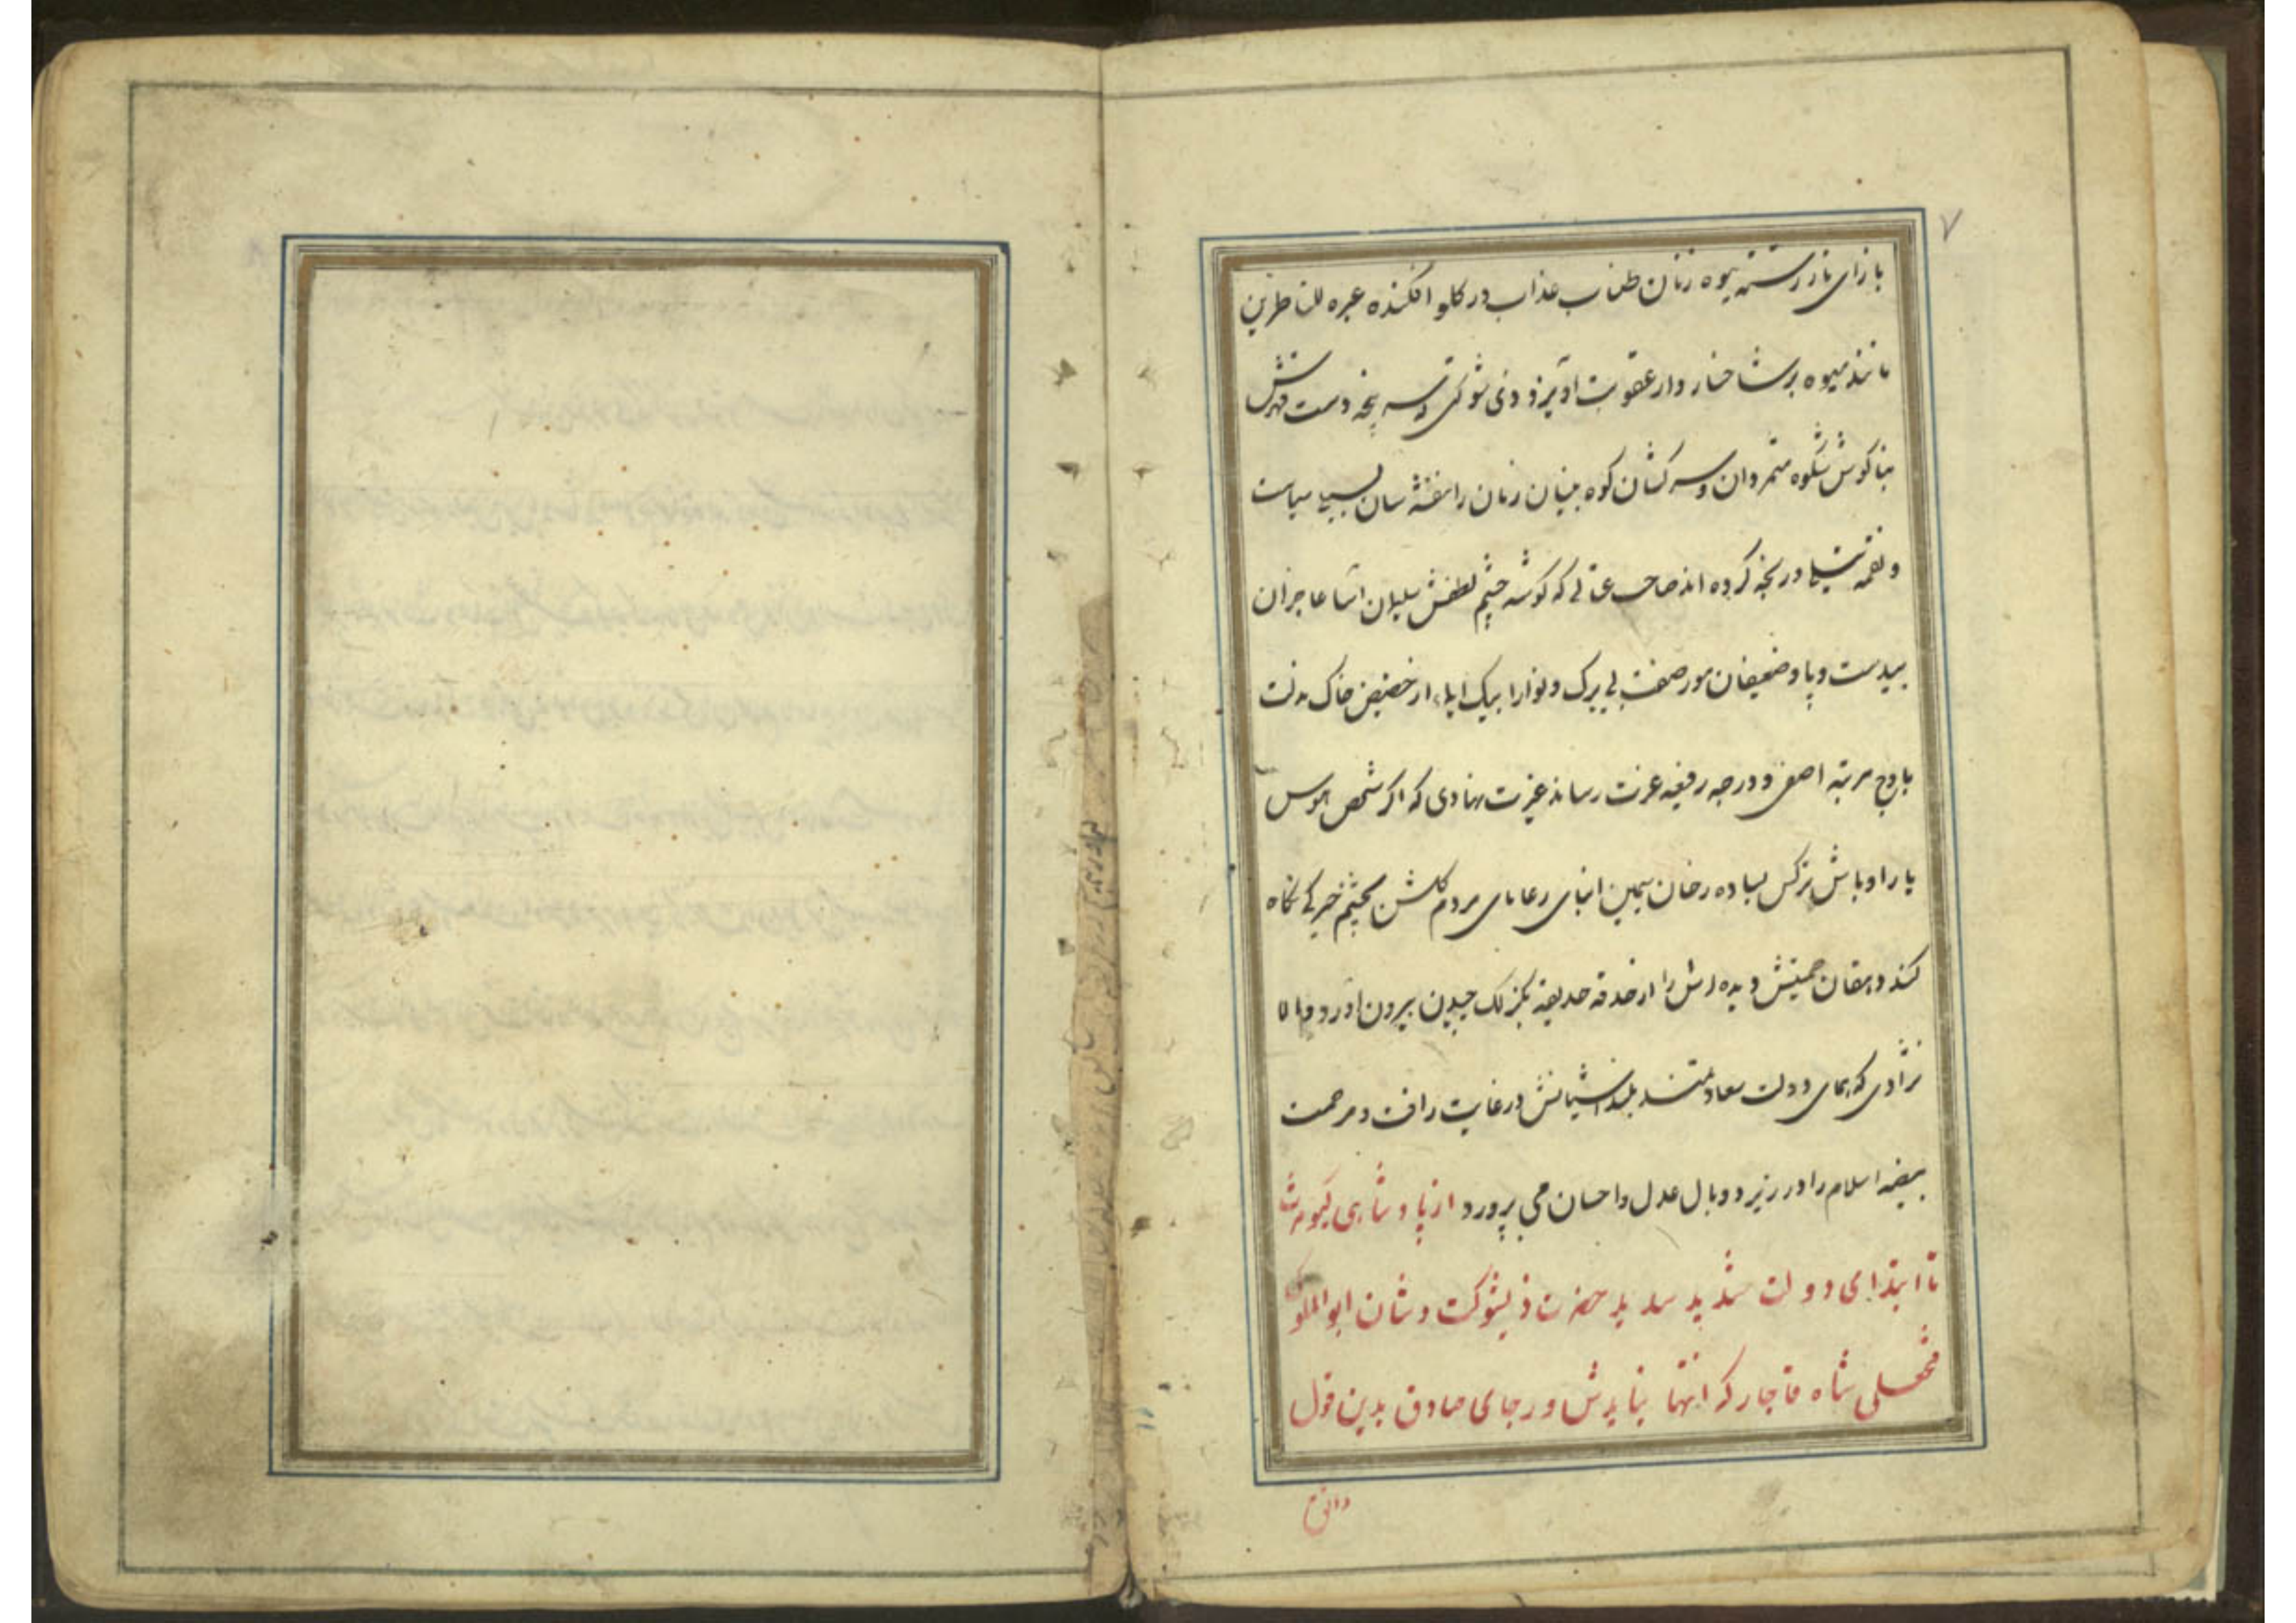 ۷
بازای تار رشته بیوه زنان طناب عذاب در کلو افکنده عبره للناظرین
مانند میوه بر شاخسار دار عقوبت اویزد ذی شوکتی که سر پنجه دست قهرش
بناکوش شکوه متمردان و سرکشان کوه بنیان زمان را بنفشه سان بسیلی سیاست
در رنجه کرده اند صاحب که کوشه چشم لطفش سلیمان اسا عاجزان
بیدست و پا و ضعیفان مور صفت بی برک و نوا را بیک ایماء از حضیض خاک مذلت
باوج مرتبه اصفی و درجه رفیعه عزت رساند غیرت نهادی که اکر شخص هوس
یا را و باش نرکس بساده رخان سیمین رعایای مردم کلشن بچشم خیرکی نکاه
کند دهقان حمیتش دیده اش را از حدقه حدیقه بکزلک چیدن بیرون اورد والا
نژادی که همای دولت سعادتمند بلند اشیانش در غایت رافت و مرحمت
بیضه اسلام را در زیر دو بال عدل و احسان می پرورد از پادشاهی کیومرث
تا ابتدای دولت شدید سدید حضرت ذیشوکت و شان ابوالملوک
فتحعلی شاه قاجار که انتها نیابدش و رجای صادق بدین قول